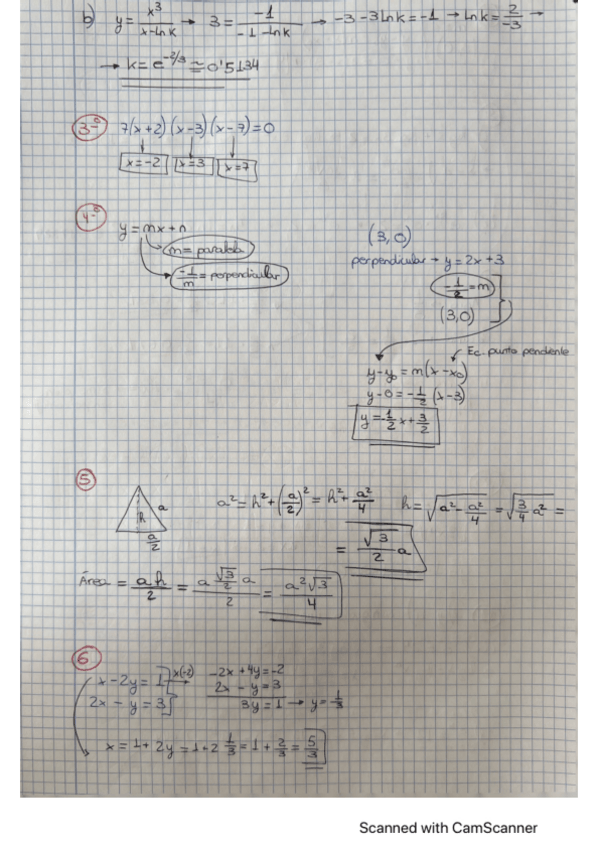 b) y = x³/(x-lnk) → 3 = -1/(-1-lnk) → -3-3lnk = -1 → lnk = 2/-3 →
→ k = e^(-2/3) ≃ 0'5134
3-º 7(x+2)(x-3)(x-7)=0
x=-2 x=3 x=7
4-º
y = mx+n
m = paralela
-1/m = perpendicular
(3,0)
perpendicular → y = 2x+3
-1/2 = m
(3,0)
Ec. punto pendiente
y-y₀ = m(x-x₀)
y-0 = -1/2 (x-3)
y = -1/2 x + 3/2
5
h a a/2
a² = h² + (a/2)² = h² + a²/4 h = √(a² - a²/4) = √(3/4 a²) =
= √3/2 a
Área = a h/2 = (a √3/2 a)/2 = a²√3/4
6
x-2y = 1 x(-2) → -2x+4y = -2
2x-y = 3 2x-y = 3
3y = 1 → y = 1/3
x = 1+2y = 1+2 1/3 = 1+2/3 = 5/3
Scanned with CamScanner